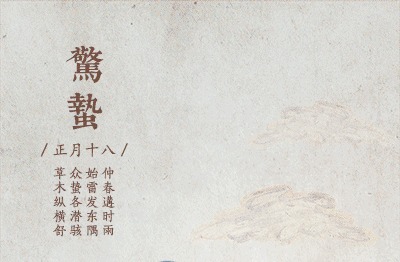 驚蟄
/正月十八/
仲春遘时雨
始雷发东隅
众蛰各潜骇
草木纵横舒